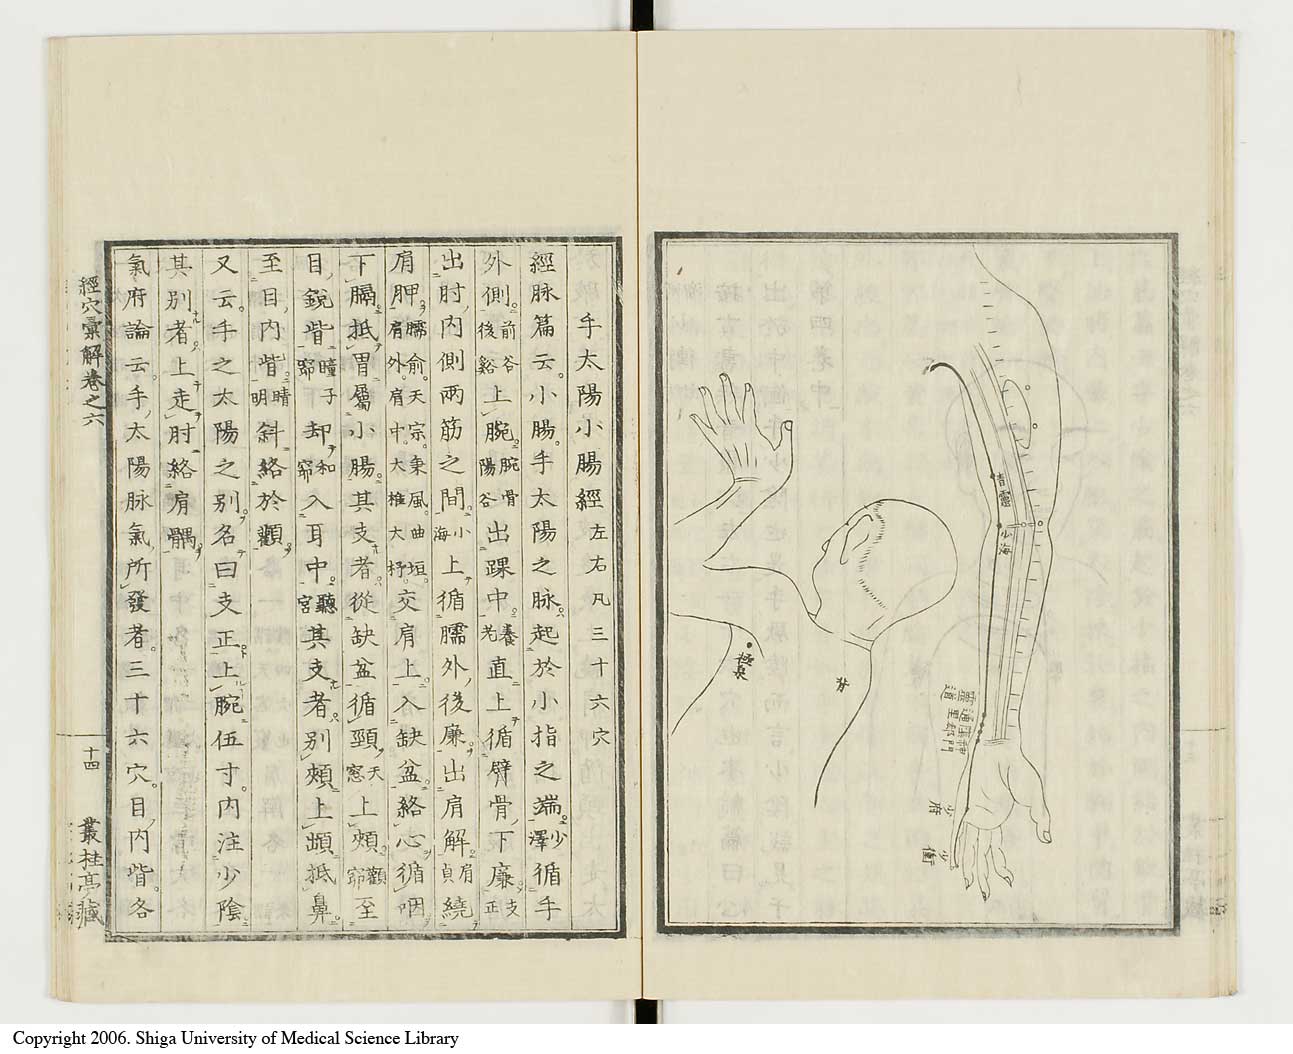 青靈
少海
神門
陰郄
通里
靈道
少府
少衝
背
極泉
手太陽小腸經左右凡三十六穴
經脉篇云。小腸。手太陽之脉。起於小指之端。少澤循手
外側。前谷後谿上腕。腕骨陽谷出踝中。養老直上循臂骨下廉。支正
出肘內側兩筋之間。小海上循臑外後廉。出肩解。肩貞繞
肩胛。臑俞。天宗。秉風。曲垣。肩外肩中。大椎大杼。交肩上。入缺盆。絡心。循咽
下膈。抵胃屬小腸。其支者。從缺盆循頸。天窓上頰。顴窌至
目銳眥。瞳子窌却和窌入耳中。聽宮其支者。別頰上䪼抵鼻。
至目內眥。睛明斜絡於顴。
又云。手之太陽之別。名曰支正。上腕伍寸。內注少陰
其別者。上走肘絡肩髃。
氣府論云。手太陽脉氣所發者。三十六穴。目內眥。各
經穴彙解卷之六
十四
叢桂亭藏
Copyright 2006. Shiga University of Medical Science Library